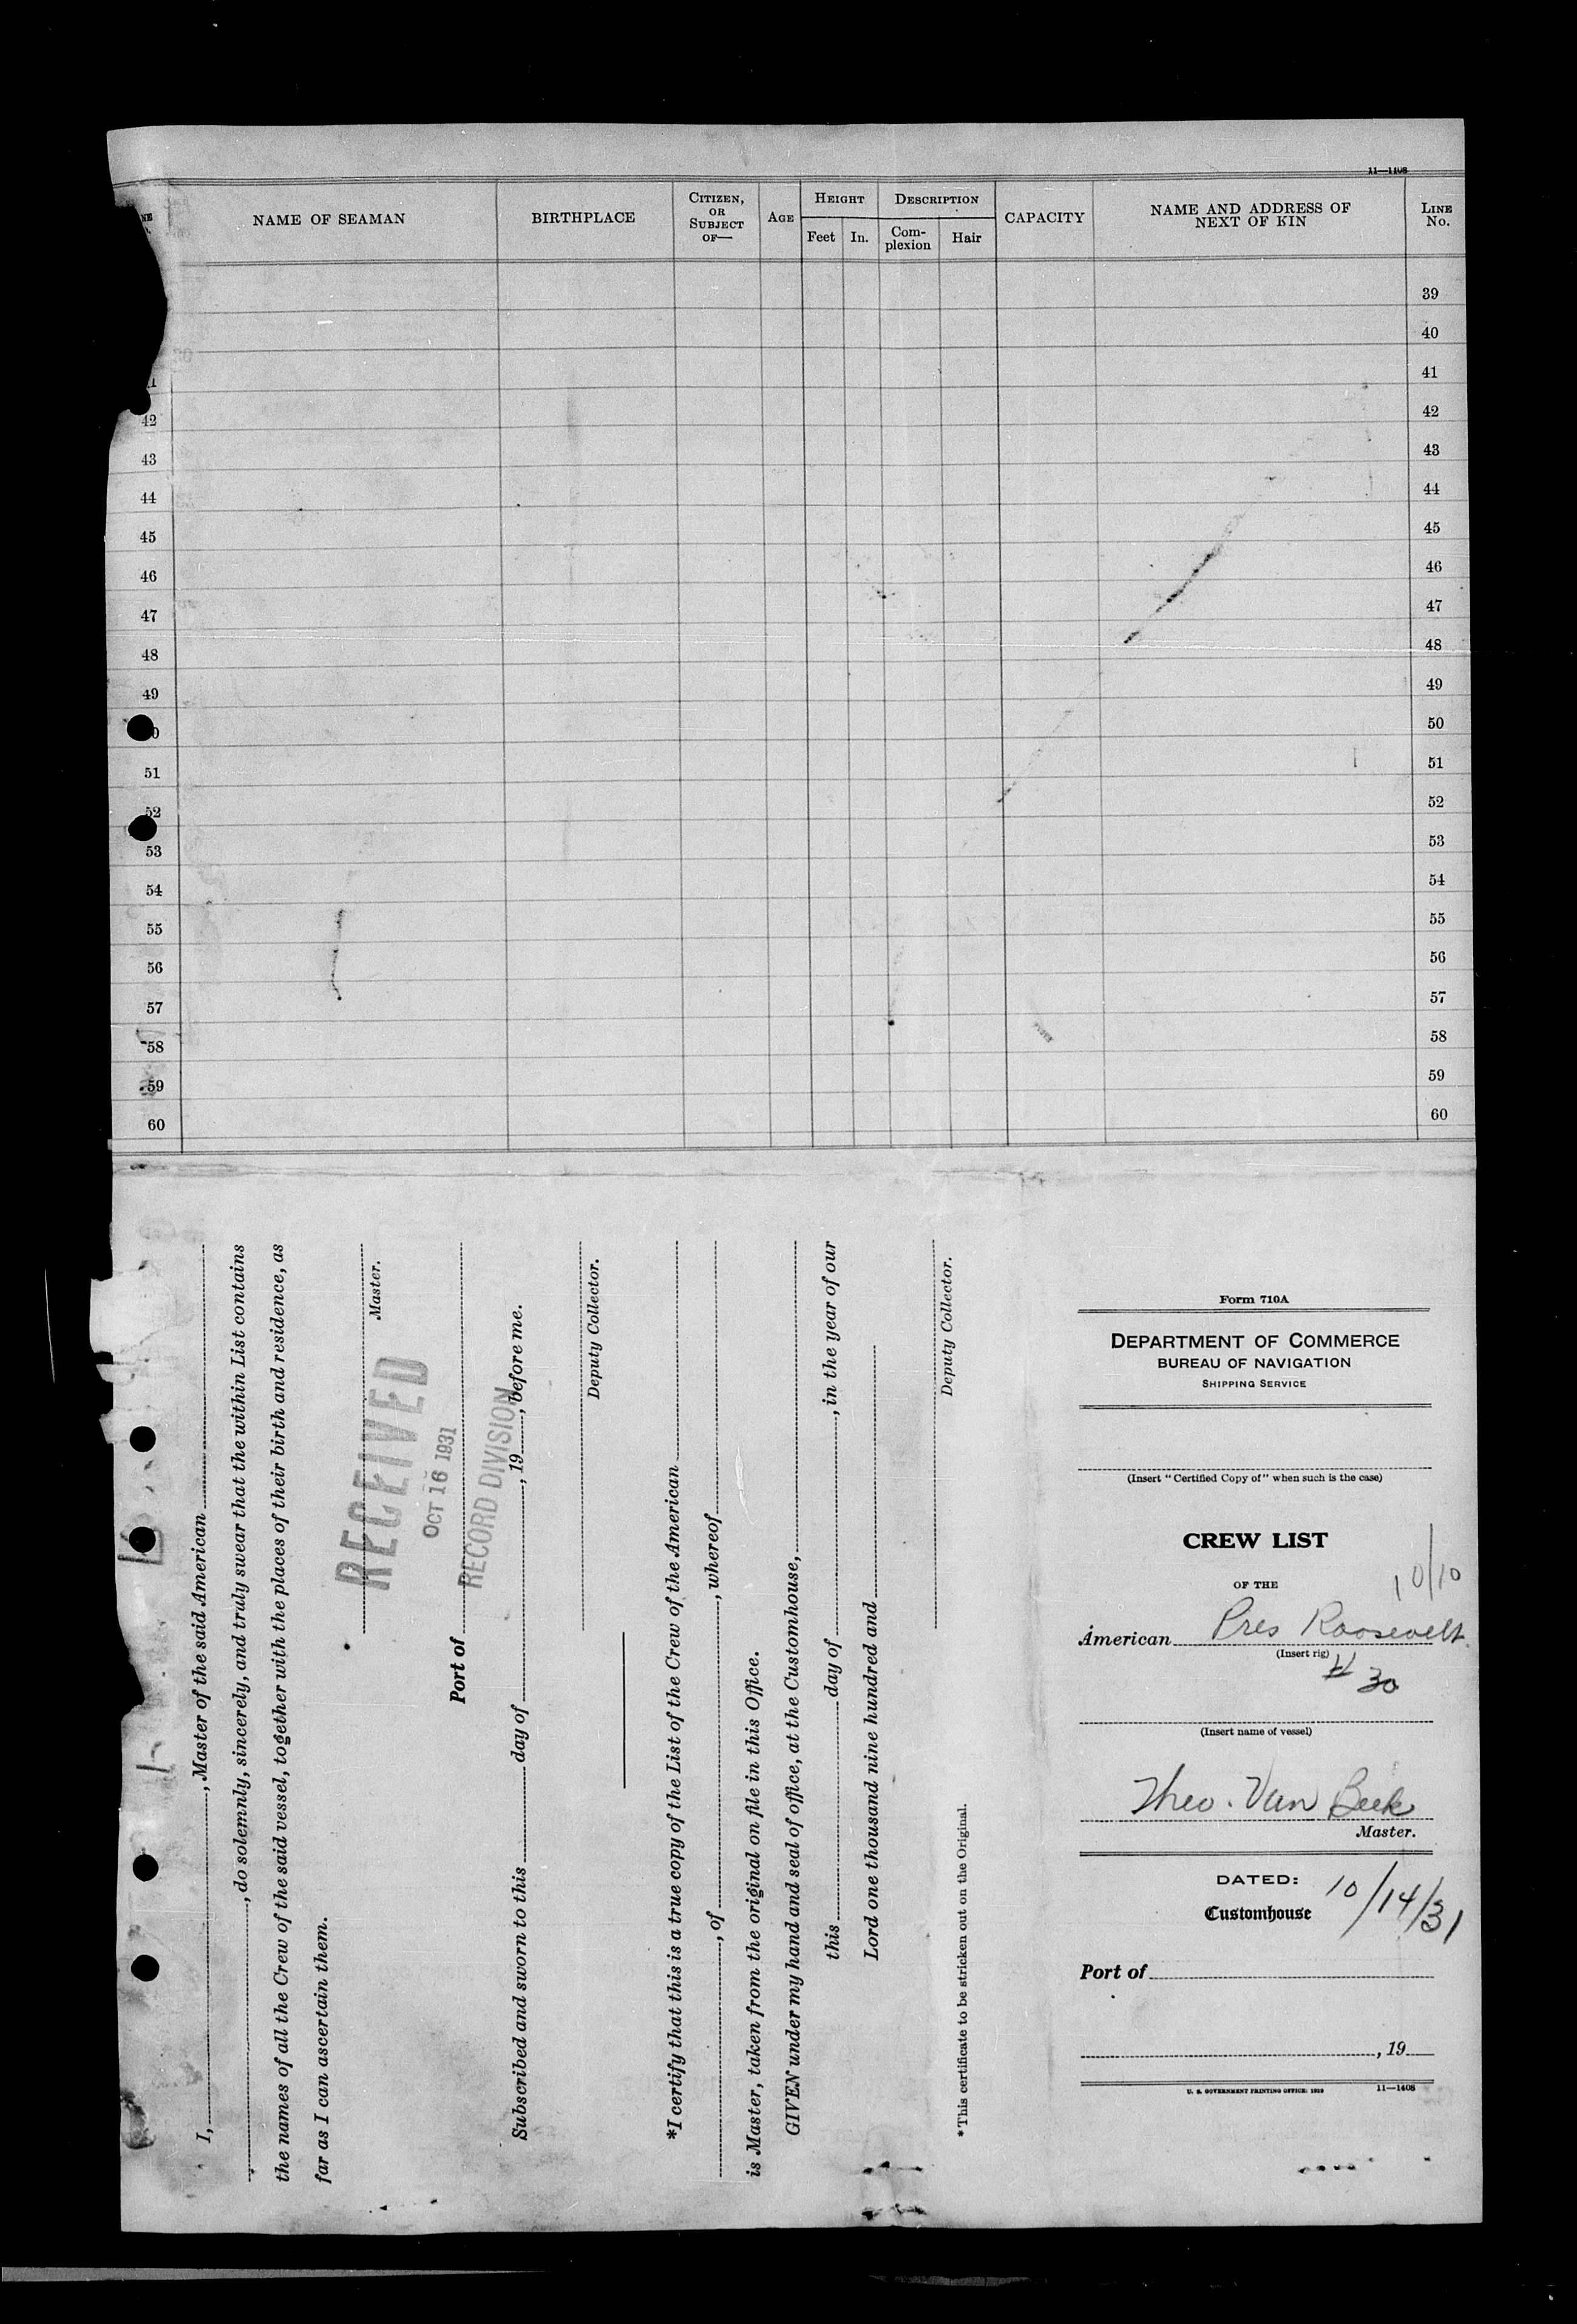 11—1108
NAME OF SEAMAN
BIRTHPLACE
CITIZEN, OR SUBJECT OF—
AGE
HEIGHT
Feet
In.
DESCRIPTION
Com-plexion
Hair
CAPACITY
NAME AND ADDRESS OF NEXT OF KIN
LINE No.
39
40
41
42 42
43 43
44 44
45 45
46 46
47 47
48 48
49 49
50
51 51
52 52
53 53
54 54
55 55
56 56
57 57
58 58
59 59
60 60
I, , Master of the said American
, do solemnly, sincerely, and truly swear that the within List contains
the names of all the Crew of the said vessel, together with the places of their birth and residence, as
far as I can ascertain them.
Master.
RECEIVED
OCT 16 1931
RECORD DIVISION
Port of
Subscribed and sworn to this day of , 19 , before me.
Deputy Collector.
*I certify that this is a true copy of the List of the Crew of the American
, of , whereof
is Master, taken from the original on file in this Office.
GIVEN under my hand and seal of office, at the Customhouse,
this day of , in the year of our
Lord one thousand nine hundred and
Deputy Collector.
*This certificate to be stricken out on the Original.
Form 710A
DEPARTMENT OF COMMERCE
BUREAU OF NAVIGATION
SHIPPING SERVICE
(Insert "Certified Copy of" when such is the case)
CREW LIST
10/10
OF THE
American Pres Roosevelt
(Insert rig)
# 30
(Insert name of vessel)
Theo. Van Beek
Master.
DATED: 10/14/31
Customhouse
Port of
, 19
U. S. GOVERNMENT PRINTING OFFICE: 1930
11—1408